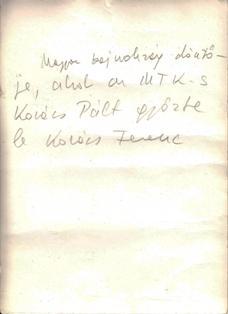 Magyar bajnokság döntő-
je, ahol az MTK-s
Kovács Pált győzte
le Kovács Ferenc